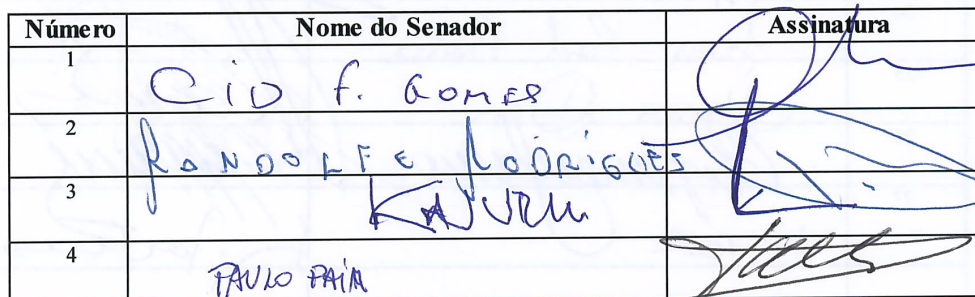 Número Nome do Senador Assinatura
1 CiD f. GOMES
2 RANDOLFE RODRiGUES
3 KAJURU
4 PAULO PAIM